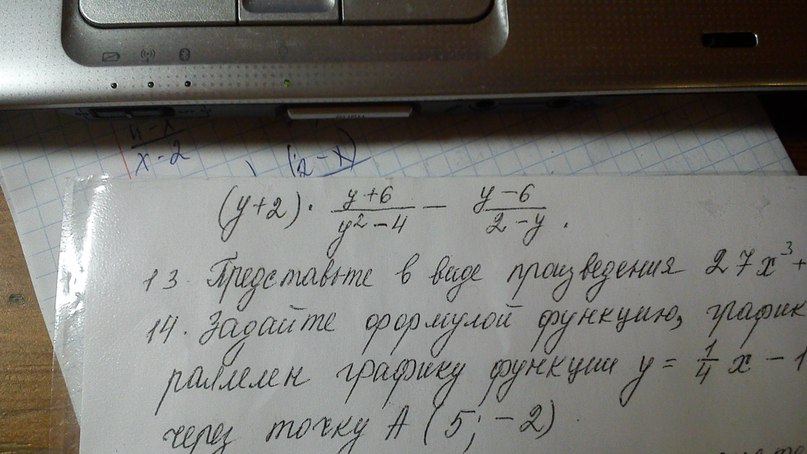 x-2
(2-x)
(y+2) · \frac{y+6}{y^2-4} - \frac{y-6}{2-y}.
13. Представьте в виде произведения 27x^3+
14. Задайте формулой функцию, график
раллелен графику функции y = \frac{1}{4}x - 1
через точку A (5; -2)